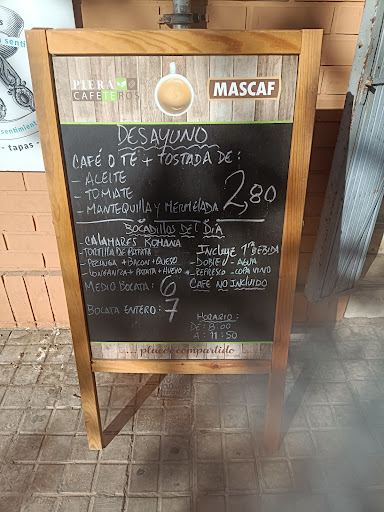 PIERA
CAFETEROS
MASCAF
DESAYUNO
CAFÉ O TÉ + TOSTADA DE:
- ACEITE
- TOMATE
- MANTEQUILLA Y MERMELADA
2,80
BOCADILLOS DEL DIA
- CALAMARES ROMANA
- TORTILLA DE PATATA
- PECHUGA + BACON + QUESO
- LONGANIZA + PATATA + HUEVO
INCLUYE 1ª BEBIDA
- DOBLE - AGUA
- REFRESCO - COPA VINO
CAFE NO INCLUIDO
MEDIO BOCATA: 6
BOCATA ENTERO: 7
HORARIO:
DE: 8:00
A: 11:50
compartido
- tapas -